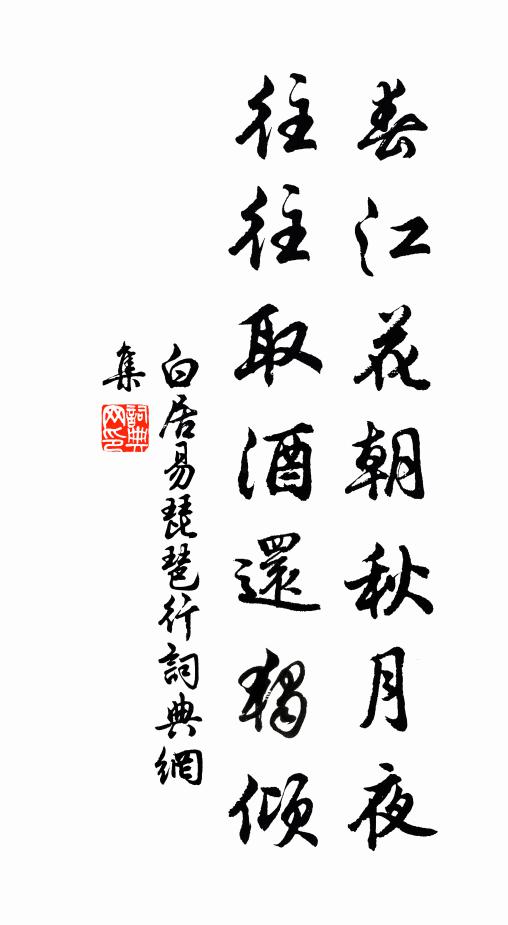 春江花朝秋月夜
往往取酒還獨傾
白居易琵琶行詞典網
集
詞典
网印